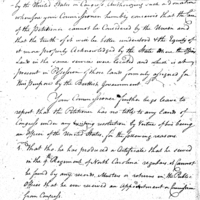 by the United States in Congress Authorizing such a donation
wherefore your Commissioner humbly conceives that the Case
of the Petitioner cannot be Considered by the Union and
that the truth of it would be better understood & the Equity of
it more properly acknowledged by the State where the
Lands in the same service were located and which is at
present in Possession of those lands formerly assigned for
this Purpose by the Brittish Government
Your Commissioner further begs leave to
report that the Petitioner has no title to any Lands of
Congress under any existing resolution by Virtue of his being
an Officer of the United States for the following reasons
That tho he has produced a Certificate that he served
in the 9th Regiment of North Carolina regulars it cannot
be found by any records, Musters or returns in the Public
Offices that he ever received an Appointment or Commission
from Congress